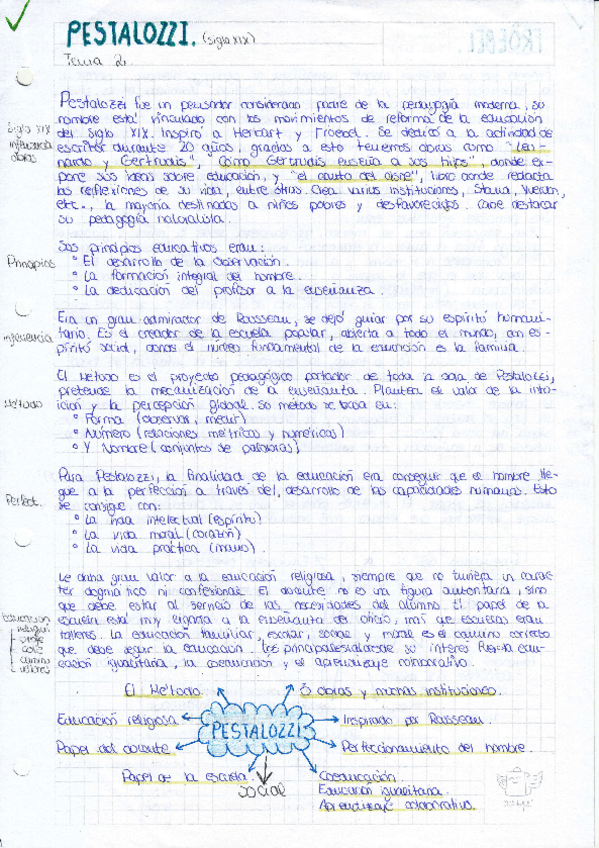 PESTALOZZI. (siglo XIX)
Tema 2.
Pestalozzi fue un pensador considerado padre de la pedagogía moderna, su
nombre está vinculado con los movimientos de reforma de la educación
del siglo XIX. Inspiró a Herbart y Froebel. Se dedicó a la actividad de
escritor durante 20 años, gracias a esto tenemos obras como "Leo-
nardo y Gertrudis", "Cómo Gertrudis enseña a sus hijos", donde ex-
pone sus ideas sobre educación, y "el canto del cisne", libro donde redacta
las reflexiones de su vida, entre otros. Crea varias instituciones, Stans, Yverdon,
etc., la mayoría destinadas a niños pobres y desfavorecidos. Cabe destacar
su pedagogía naturalista.
Siglo XIX
influencia
obras
Sus principios educativos eran:
° El desarrollo de la observación.
° La formación integral del hombre.
° La dedicación del profesor a la enseñanza.
Principios
Era un gran admirador de Rousseau, se dejó guiar por su espíritu humani-
tario. Es el creador de la escuela popular, abierta a todo el mundo, con es-
píritu social, donde el núcleo fundamental de la educación es la familia.
influencia
El Método es el proyecto pedagógico portador de toda la obra de Pestalozzi,
pretende la mecanización de la enseñanza. Plantea el valor de la intu-
ición y la percepción global. Su método se basa en:
° Forma (observar, medir)
° Número (relaciones métricas y numéricas)
° Y Nombre (conjuntos de palabras)
Método
Para Pestalozzi, la finalidad de la educación era conseguir que el hombre lle-
gue a la perfección a través del desarrollo de las capacidades humanas. Esto
se consigue con:
° La vida intelectual (espíritu)
° La vida moral (corazón)
° La vida práctica (mano).
Perfect.
Le daba gran valor a la educación religiosa, siempre que no tuviera un carác-
ter dogmático ni confesional. El docente no es una figura autoritaria, sino
que debe estar al servicio de las necesidades del alumno. El papel de la
escuela está muy ligada a la enseñanza del oficio, más que escuelas eran
talleres. La educación familiar, escolar, social y moral es el camino correcto
que debe seguir la educación. su interés hacia edu-
cación igualitaria, la coeducación y el aprendizaje colaborativo.
Educación
religión
profe
cole
camino
valores
El Método.
3 obras y muchas instituciones.
Educación religiosa
PESTALOZZI
Inspirado por Rousseau.
Papel del docente
Perfeccionamiento del hombre.
Papel de la escuela.
social
Coeducación
Educación igualitaria.
Aprendizaje colaborativo.